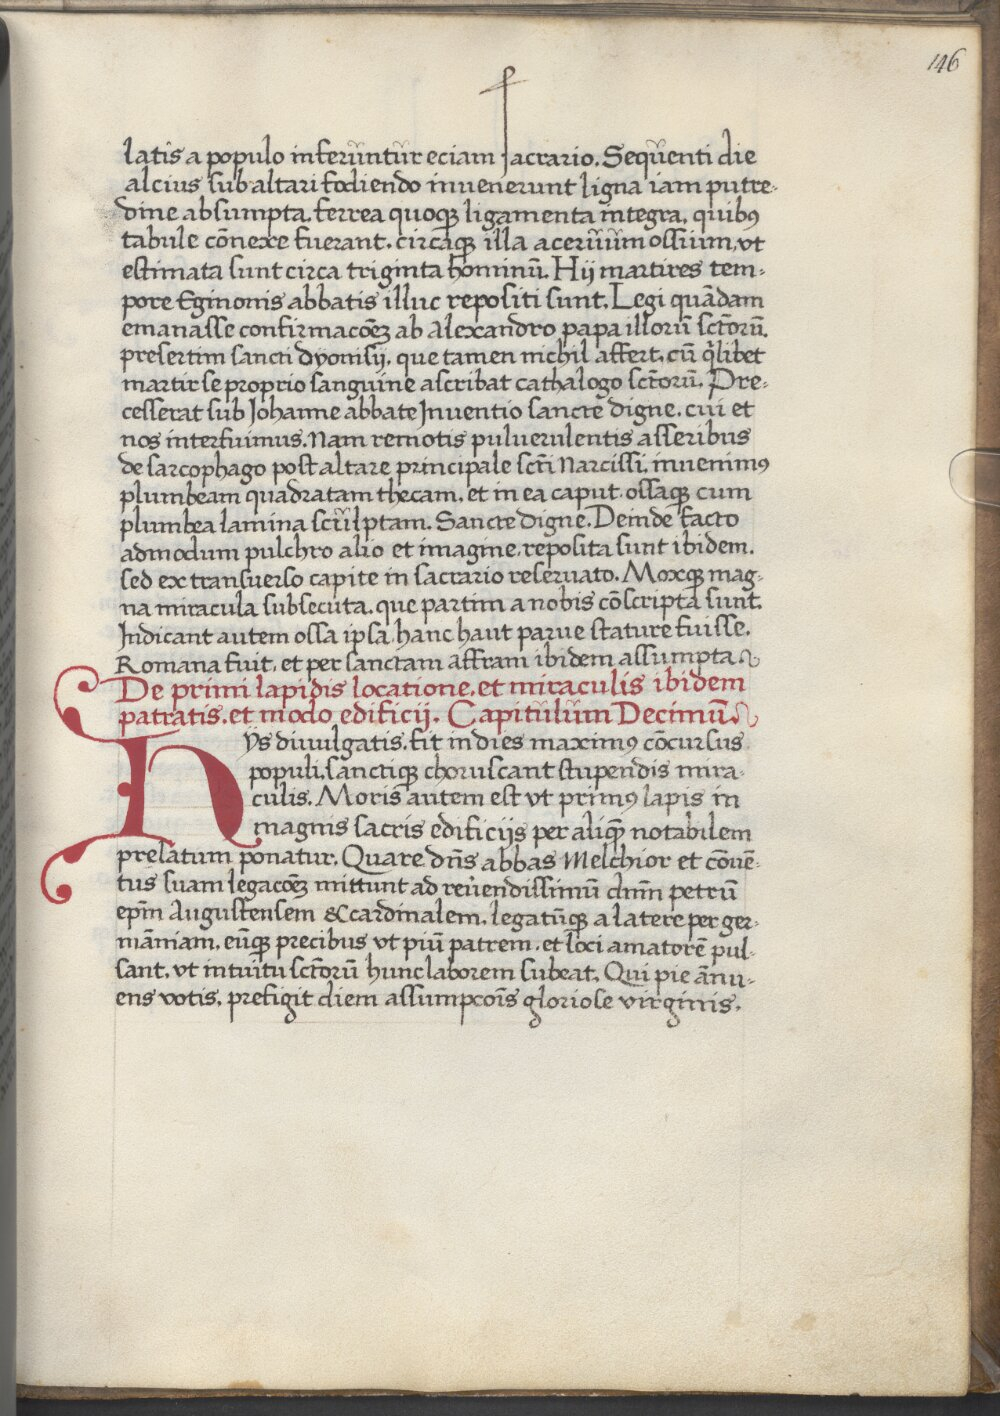 146
latis a populo inferūntūr eciam sacrario. Seqūenti die
alcius sub altari fodiendo inuenerunt ligna iam putre-
dine absumpta, ferrea quoqꝫ ligamenta integra, quibꝰ
tabule cōnexe fuerant, circāqꝫ illa acerūūm ossium, vt
estimata sunt circa triginta hominū. Hij martires tem-
pore Eginonis abbatis illuc repositi sunt. Legi quādam
emanasse confirmacōeꝫ ab Alexandro papa illorū sctōrū.
presertim sancti dyonisij, que tamen nichil affert, cū q̄libet
martir se proprio sanguine ascribat cathalogo sctōrū. Pre-
cesserat sub Johanne abbate Inuentio sancte digne, cui et
nos interfuimus. Nam remotis puluerulentis asseribus
de sarcophago post altare principale scti Narcissi, inuenimꝰ
plumbeam quadratam thecam, et in ea caput, ossaqꝫ cum
plumbea lamina scūlptam. Sancte Digne. Deinde facto
admodum pulchro alio et imagine, reposita sunt ibidem.
sed ex transuerso capite in sacrario reseruato. Moxqꝫ mag-
na miracula subsecuta, que partim a nobis cōscripta sunt.
Indicant autem ossa ipsa, hanc haut parue stature fuisse.
Romana fuit, et per sanctam affram ibidem assumpta.
De primi lapidis locatione, et miraculis ibidem
patratis, et modo edificij. Capitūlūm Decimū
Hys diuulgatis, fit in dies maximꝰ cōcursus
populi, sanctiqꝫ choruscant stupendis mira-
culis. Moris autem est vt primꝰ lapis in
magnis sacris edificijs per aliqꝫ notabilem
prelatum ponatur. Quare dn̄s abbas Melchior et cōuē-
tus suam legacōeꝫ mittunt ad reuendissimū dnm̄ petrū
ep̄m Augustensem &cardinalem, legatūqꝫ a latere per ger-
māniam, eūqꝫ precibus vt piū patrem, et loci amatorē pul-
sant, vt intuitu sctōrū hunc laborem subeat. Qui pie ānu-
ens votis, prefigit diem assumpcōis gloriose virginis.